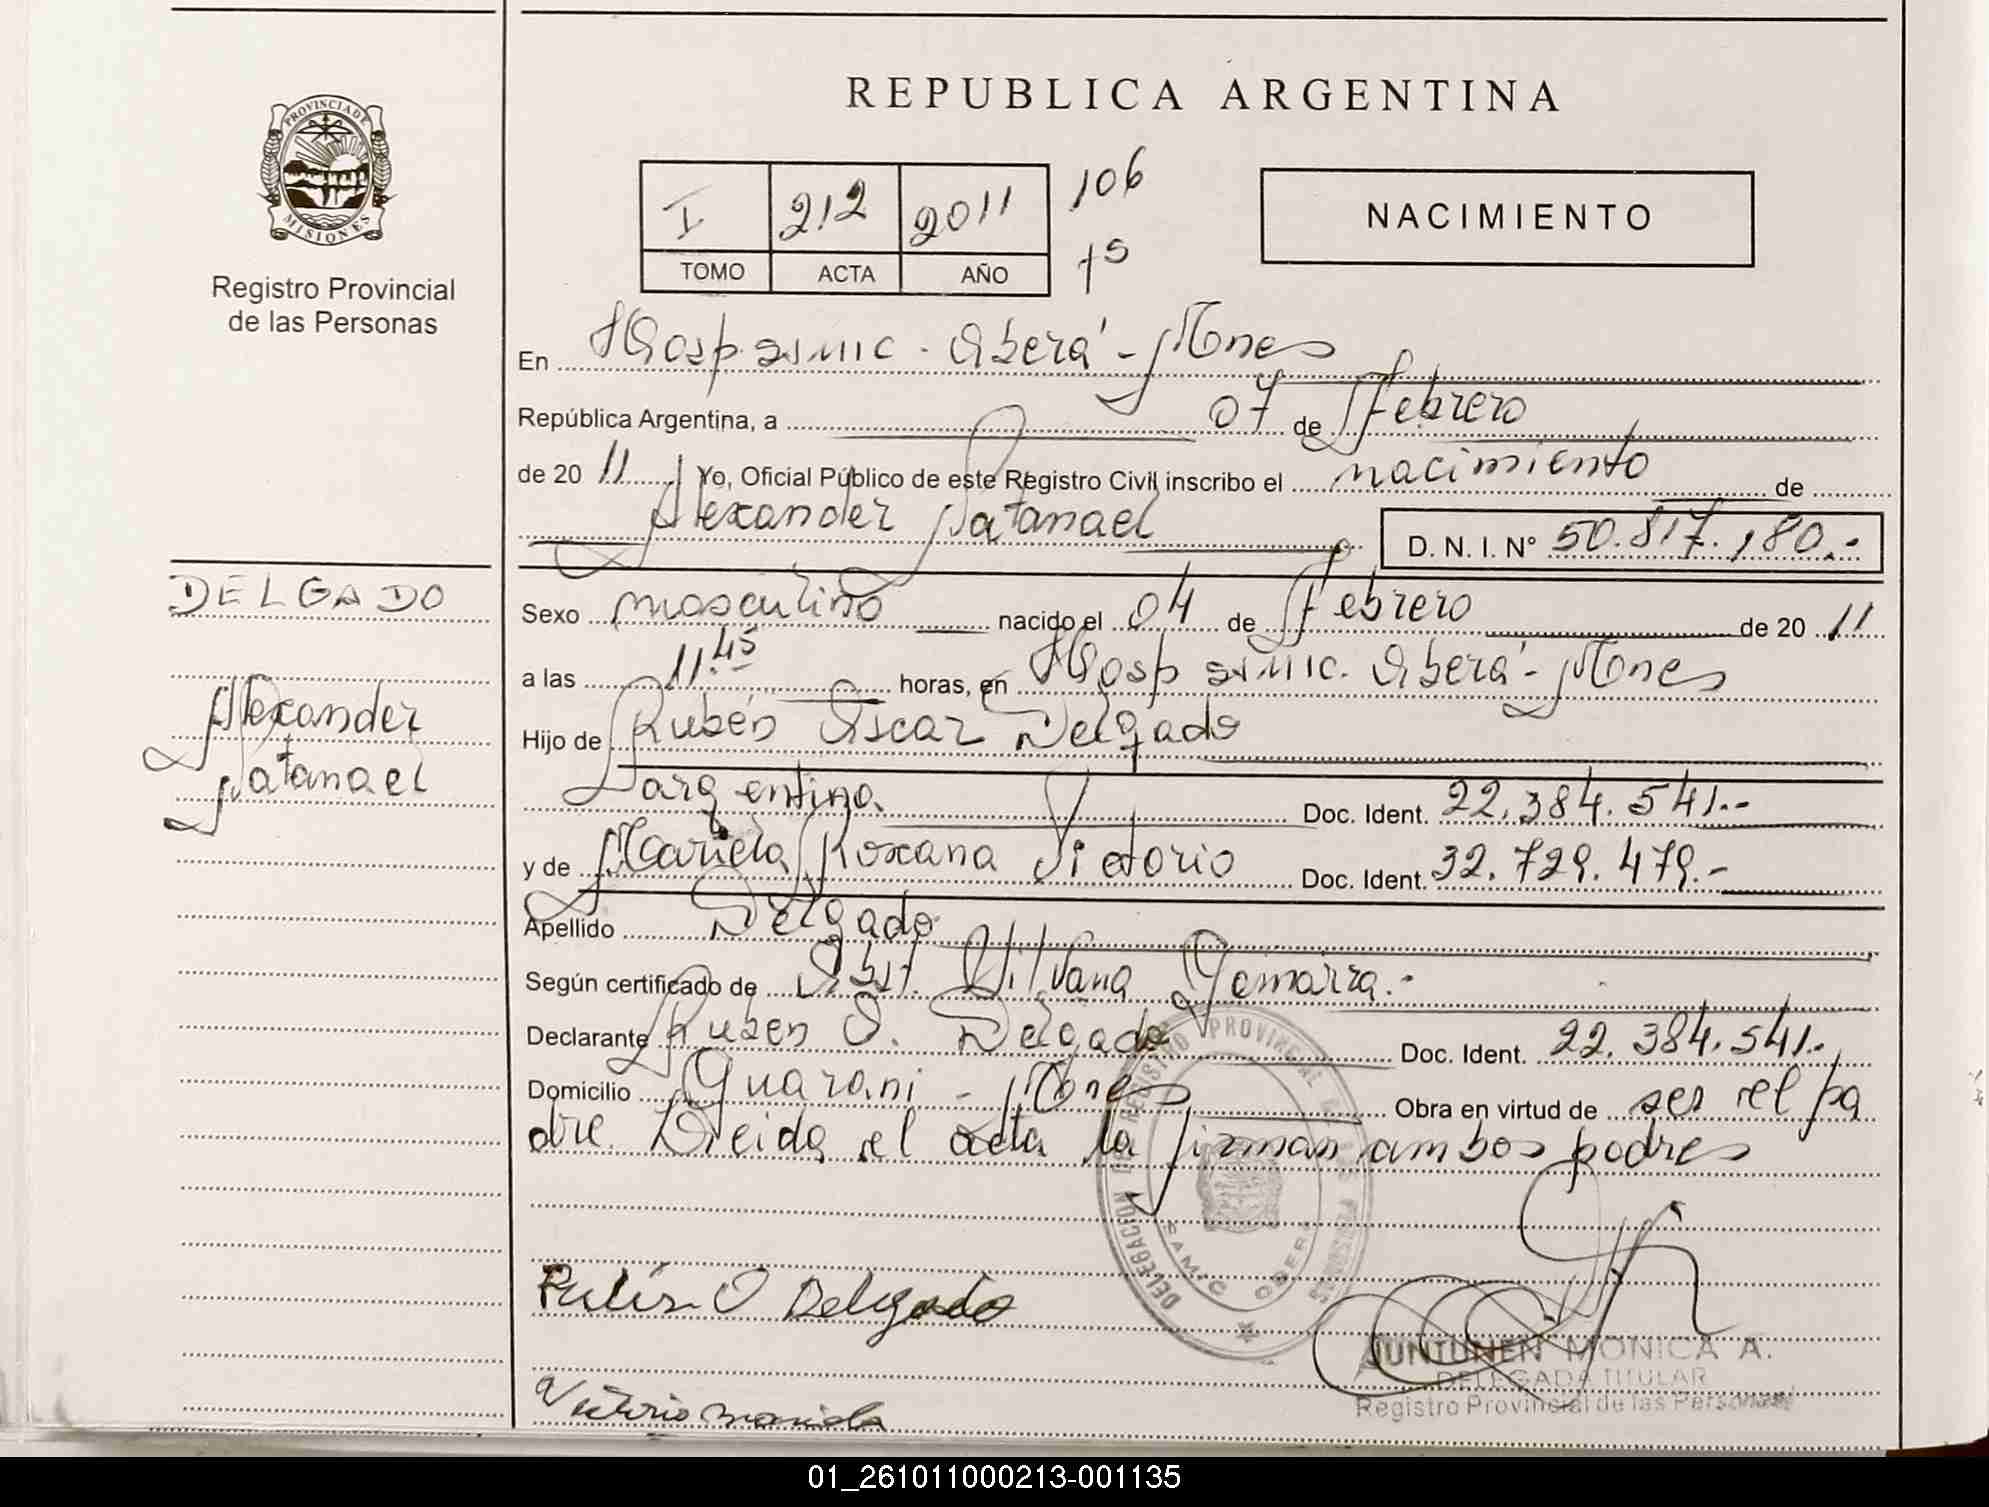 REPUBLICA ARGENTINA
PROVINCIA DE
MISIONES
Registro Provincial
de las Personas
I 212 2011 106
TOMO ACTA AÑO
NACIMIENTO
En Hosp. SAMIC - Oberá - Mnes
República Argentina, a 07 de Febrero
de 20 11 Yo, Oficial Público de este Registro Civil inscribo el nacimiento de
Alexander Natanael D. N. I. Nº 50.817.180.-
DELGADO
Alexander
Natanael
Sexo masculino nacido el 04 de Febrero de 20 11
a las 11.45 horas, en Hosp SAMIC. Oberá - Mnes
Hijo de Rubén Oscar Delgado
argentino. Doc. Ident. 22.384.541.-
y de Mariela Roxana Victorio Doc. Ident. 32.729.479.-
Apellido Delgado
Según certificado de Obst. Silvana Gamarra.-
Declarante Ruben O. Delgado Doc. Ident. 22.384.541.-
Domicilio Guarani - Mnes Obra en virtud de ser el pa
dre. Leida el acta la firman ambos padres
DELEGACION DEL REGISTRO PROVINCIAL DE LAS PERSONAS
SAMIC OBERA
Rubén O Delgado
JUNTUNEN MONICA A.
DELEGADA TITULAR
Registro Provincial de las Personas
Victorio Mariela
01_261011000213-001135